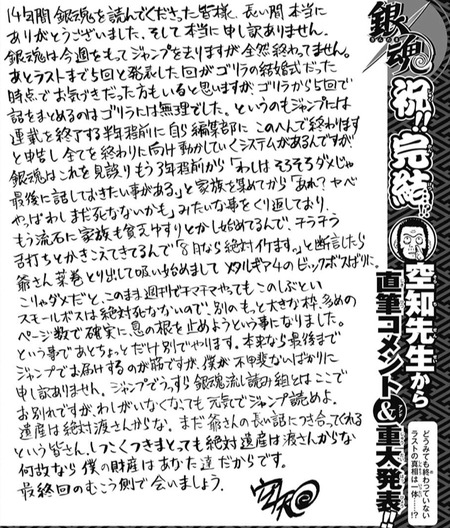 銀魂
祝!!完結!?
空知先生から
直筆コメント&重大発表!!
どうみても終わっていない
ラストの真相は一体……!?
14年間 銀魂を読んでくださった皆様、長い間 本当に
ありがとうございました。そして本当に申し訳ありません。
銀魂は今週をもってジャンプを去りますが全然終わってません。
あとラストまで5回と発表した回がゴリラの結婚式だった
時点でお気づきだった方もいると思いますが、ゴリラから5回で
話をまとめるのはゴリラには無理でした。というのもジャンプには
連載を終了する半年程前に自ら編集部に このへんで終わります
と申告し全てを終わりに向け動かしていくシステムがあるんですが
銀魂はこれを見誤り もう3年程前から「わしは そろそろダメじゃ
最後に話しておきたい事がある」と家族を集めてから「あれ?ヤベ
やっぱわし まだ死なないかも」みたいな事をくり返しており、
もう流石に家族も貧乏ゆすりとかし始めてるんで、チラチラ
舌打ちとかきこえてきてるんで「8月なら絶対イケます。」と断言したら
爺さん葉巻とり出して吸い始めまして メタルギア4のビッグボスばりに。
こりゃダメだと、このまま週刊でチマチマやってても このしぶとい
スモールボスは絶対死なないので、別のもっと大きな枠、多めの
ページ数で確実に息の根を止めようという事になりました。
という事であとちょっとだけ別でやります。本来なら最後まで
ジャンプでお届けするのが筋ですが、僕が不甲斐ないばかりに
申し訳ありません。ジャンプでうっすら銀魂流し読み組とはここで
お別れですが、わしがいなくなっても元気でジャンプ読めよ。
遺産は絶対渡さんからな。まだ爺さんの長い話につき合ってくれる
という皆さん、しつこくつきまとっても絶対遺産は渡さんからな
何故なら僕の財産はあなた達だからです。
最終回のむこう側で会いましょう。
空知